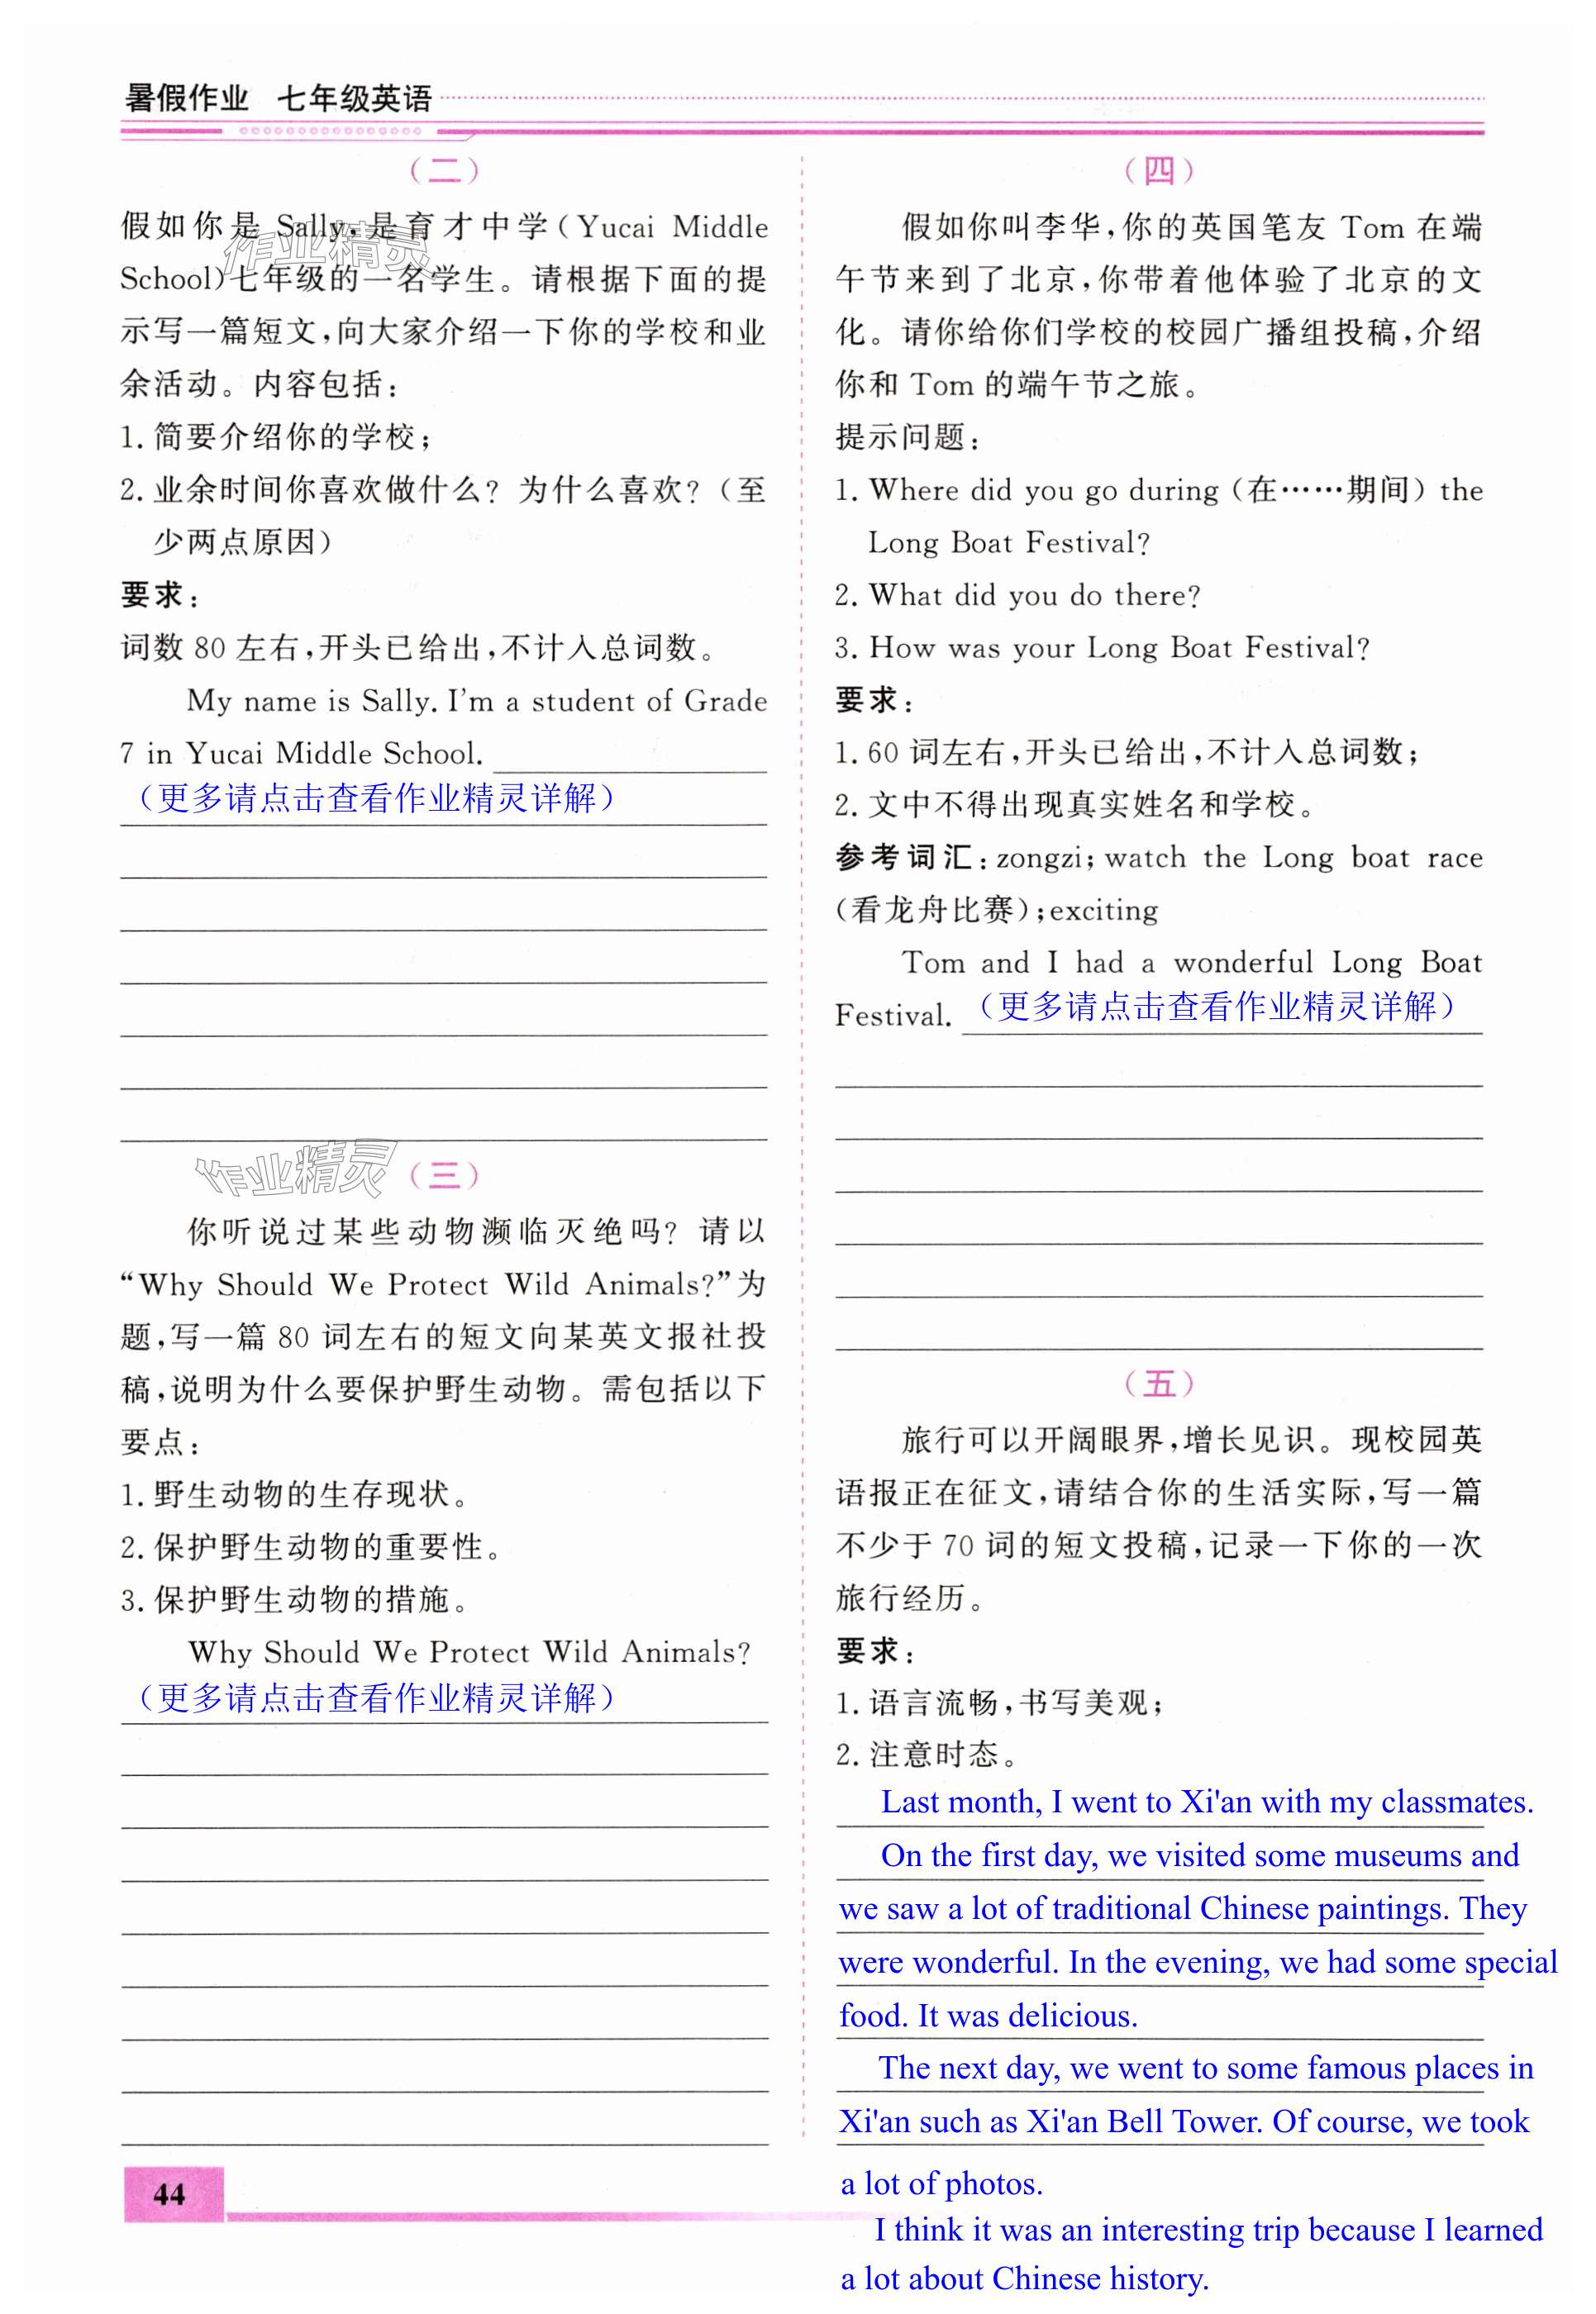 暑假作业 七年级英语
（二）
假如你是 Sally，是育才中学（Yucai Middle
School）七年级的一名学生。请根据下面的提
示写一篇短文，向大家介绍一下你的学校和业
余活动。内容包括：
1. 简要介绍你的学校；
2. 业余时间你喜欢做什么？为什么喜欢？（至
少两点原因）
要求：
词数 80 左右，开头已给出，不计入总词数。
My name is Sally. I'm a student of Grade
7 in Yucai Middle School.
（更多请点击查看作业精灵详解）
作业精灵
作业精灵
（三）
你听说过某些动物濒临灭绝吗？请以
“Why Should We Protect Wild Animals?”为
题，写一篇 80 词左右的短文向某英文报社投
稿，说明为什么要保护野生动物。需包括以下
要点：
1. 野生动物的生存现状。
2. 保护野生动物的重要性。
3. 保护野生动物的措施。
Why Should We Protect Wild Animals?
（更多请点击查看作业精灵详解）
44
（四）
假如你叫李华，你的英国笔友 Tom 在端
午节来到了北京，你带着他体验了北京的文
化。请你给你们学校的校园广播组投稿，介绍
你和 Tom 的端午节之旅。
提示问题：
1. Where did you go during（在……期间）the
Long Boat Festival?
2. What did you do there?
3. How was your Long Boat Festival?
要求：
1. 60 词左右，开头已给出，不计入总词数；
2. 文中不得出现真实姓名和学校。
参考词汇：zongzi；watch the Long boat race
（看龙舟比赛）；exciting
Tom and I had a wonderful Long Boat
Festival. （更多请点击查看作业精灵详解）
（五）
旅行可以开阔眼界，增长见识。现校园英
语报正在征文，请结合你的生活实际，写一篇
不少于 70 词的短文投稿，记录一下你的一次
旅行经历。
要求：
1. 语言流畅，书写美观；
2. 注意时态。
Last month, I went to Xi'an with my classmates.
On the first day, we visited some museums and
we saw a lot of traditional Chinese paintings. They
were wonderful. In the evening, we had some special
food. It was delicious.
The next day, we went to some famous places in
Xi'an such as Xi'an Bell Tower. Of course, we took
a lot of photos.
I think it was an interesting trip because I learned
a lot about Chinese history.